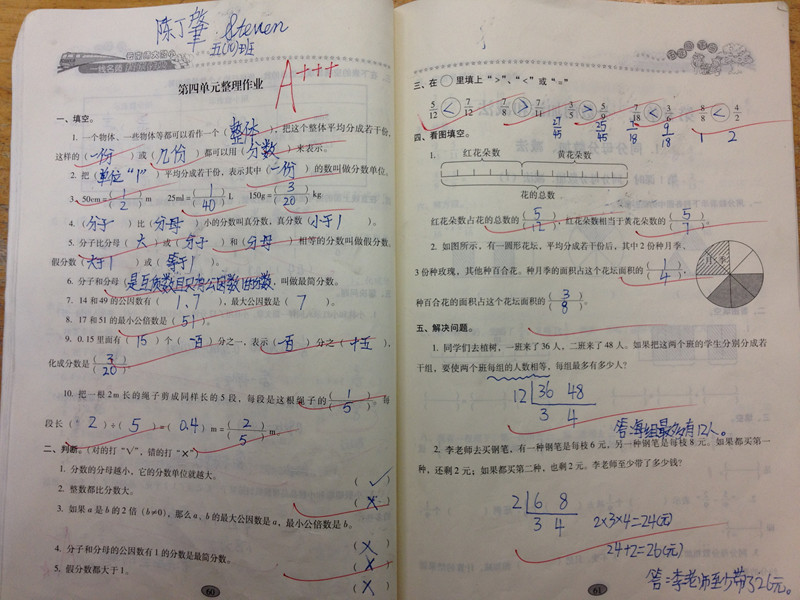 陈丁肇 Steven
五(10)班
第四单元整理作业
A+++
一、填空。
1. 一个物体、一些物体等都可以看作一个（整体），把这个整体平均分成若干份，
这样的（一份）或（几份）都可以用（分数）来表示。
2. 把（单位“1”）平均分成若干份，表示其中（一份）的数叫做分数单位。
3. 50cm=(1/2)m 25ml=(1/40)L 150g=(3/20)kg
4.（分子）比（分母）小的分数叫真分数，真分数（小于1）。
5. 分子比分母（大）或（分子）和（分母）相等的分数叫做假分数，
假分数（大于1）或（等于1）。
6. 分子和分母（是互质数且只有公因数1的分数）叫做最简分数。
7. 14和49的公因数有（1、7），最大公因数是（7）。
8. 17和51的最小公倍数是（51）。
9. 0.15里面有（15）个（一百）分之一，表示（一百）分之（十五），
化成分数是(3/20)
10. 把一根2m长的绳子剪成同样长的5段，每段是这根绳子的(1/5)。每
段长（2）÷（5）=（0.4）m=(2/5)m。
二、判断。(对的打“√”，错的打“×”)
1. 分数的分母越小，它的分数单位就越大。（√）
2. 整数都比分数大。（×）
3. 如果a是b的2倍（b≠0），那么a、b的最大公因数是a，最小公倍数是b。
（×）
4. 分子和分母的公因数有1的分数是最简分数。（×）
5. 假分数都大于1。（×）
60
三、在○里填上“>”、“<”或“=”
5/12 < 7/12 7/8 > 7/11 3/5 > 5/9 7/18 < 3/6 8/8 < 4/2
27/45 25/45 7/18 9/18 1 2
四、看图填空。
1. 红花朵数 黄花朵数
花的总数
红花朵数占花的总数的(5/12)，红花朵数相当于黄花朵数的(5/7)。
2. 如图所示，有一圆形花坛，平均分成若干份后，其中2份种月季，
3份种玫瑰，其他种百合花。种月季的面积占这个花坛面积的(1/4)，
月季
种百合花的面积占这个花坛面积的(3/8)。
五、解决问题。
1. 同学们去植树，一班来了36人，二班来了48人。如果把这两个班的学生分别分成若
干组，要使两个班每组的人数相等，每组最多有多少人？
12 36 48
3 4
答:每组最多有12人。
2. 李老师去买钢笔，有一种钢笔是每枝6元，另一种钢笔是每枝8元。如果都买第一
种，还剩2元；如果都买第二种，也剩2元。李老师至少带了多少钱？
2 6 8
3 4
2×3×4=24(元)
24+2=26(元)
答:李老师至少带了26元。
61